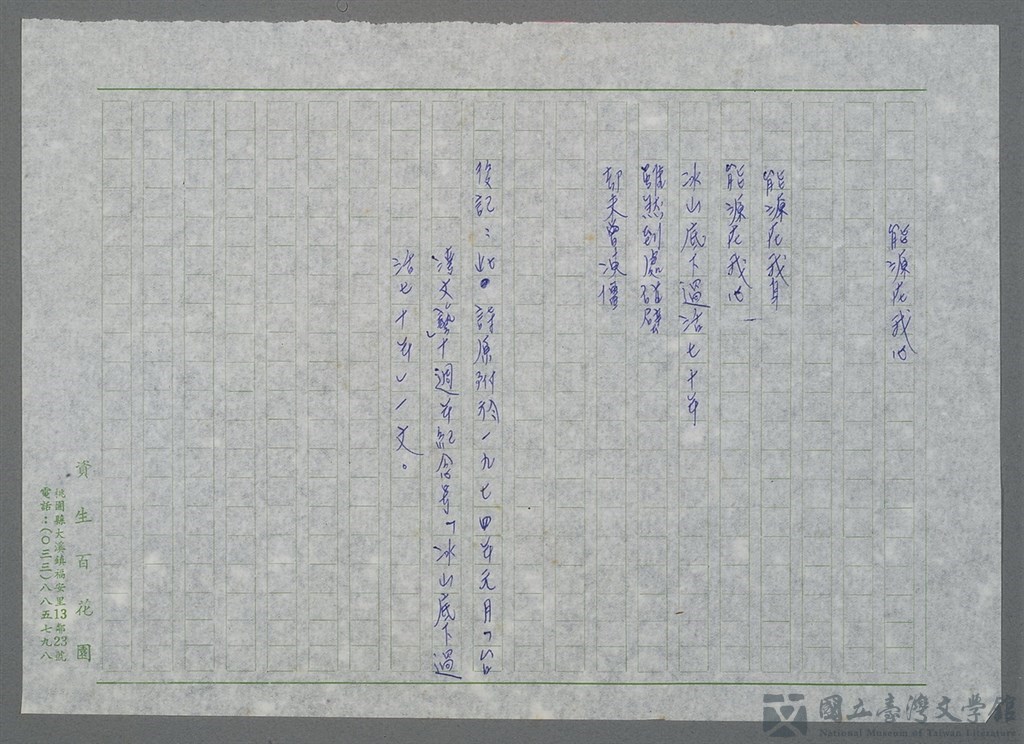 能源在我心
能源在我身
能源在我心
冰山底下過活七十年
雖然到處碰壁
却未曾凍僵
後記：此詩原附於一九七四年元月「台
灣文藝」十週年紀念号「冰山底下過
活七十年」一文。
資生百花園
桃園縣大溪鎮福安里13鄰23號
電話：(〇三三)八八五七九八
國立臺灣文學館
National Museum of Taiwan Literature